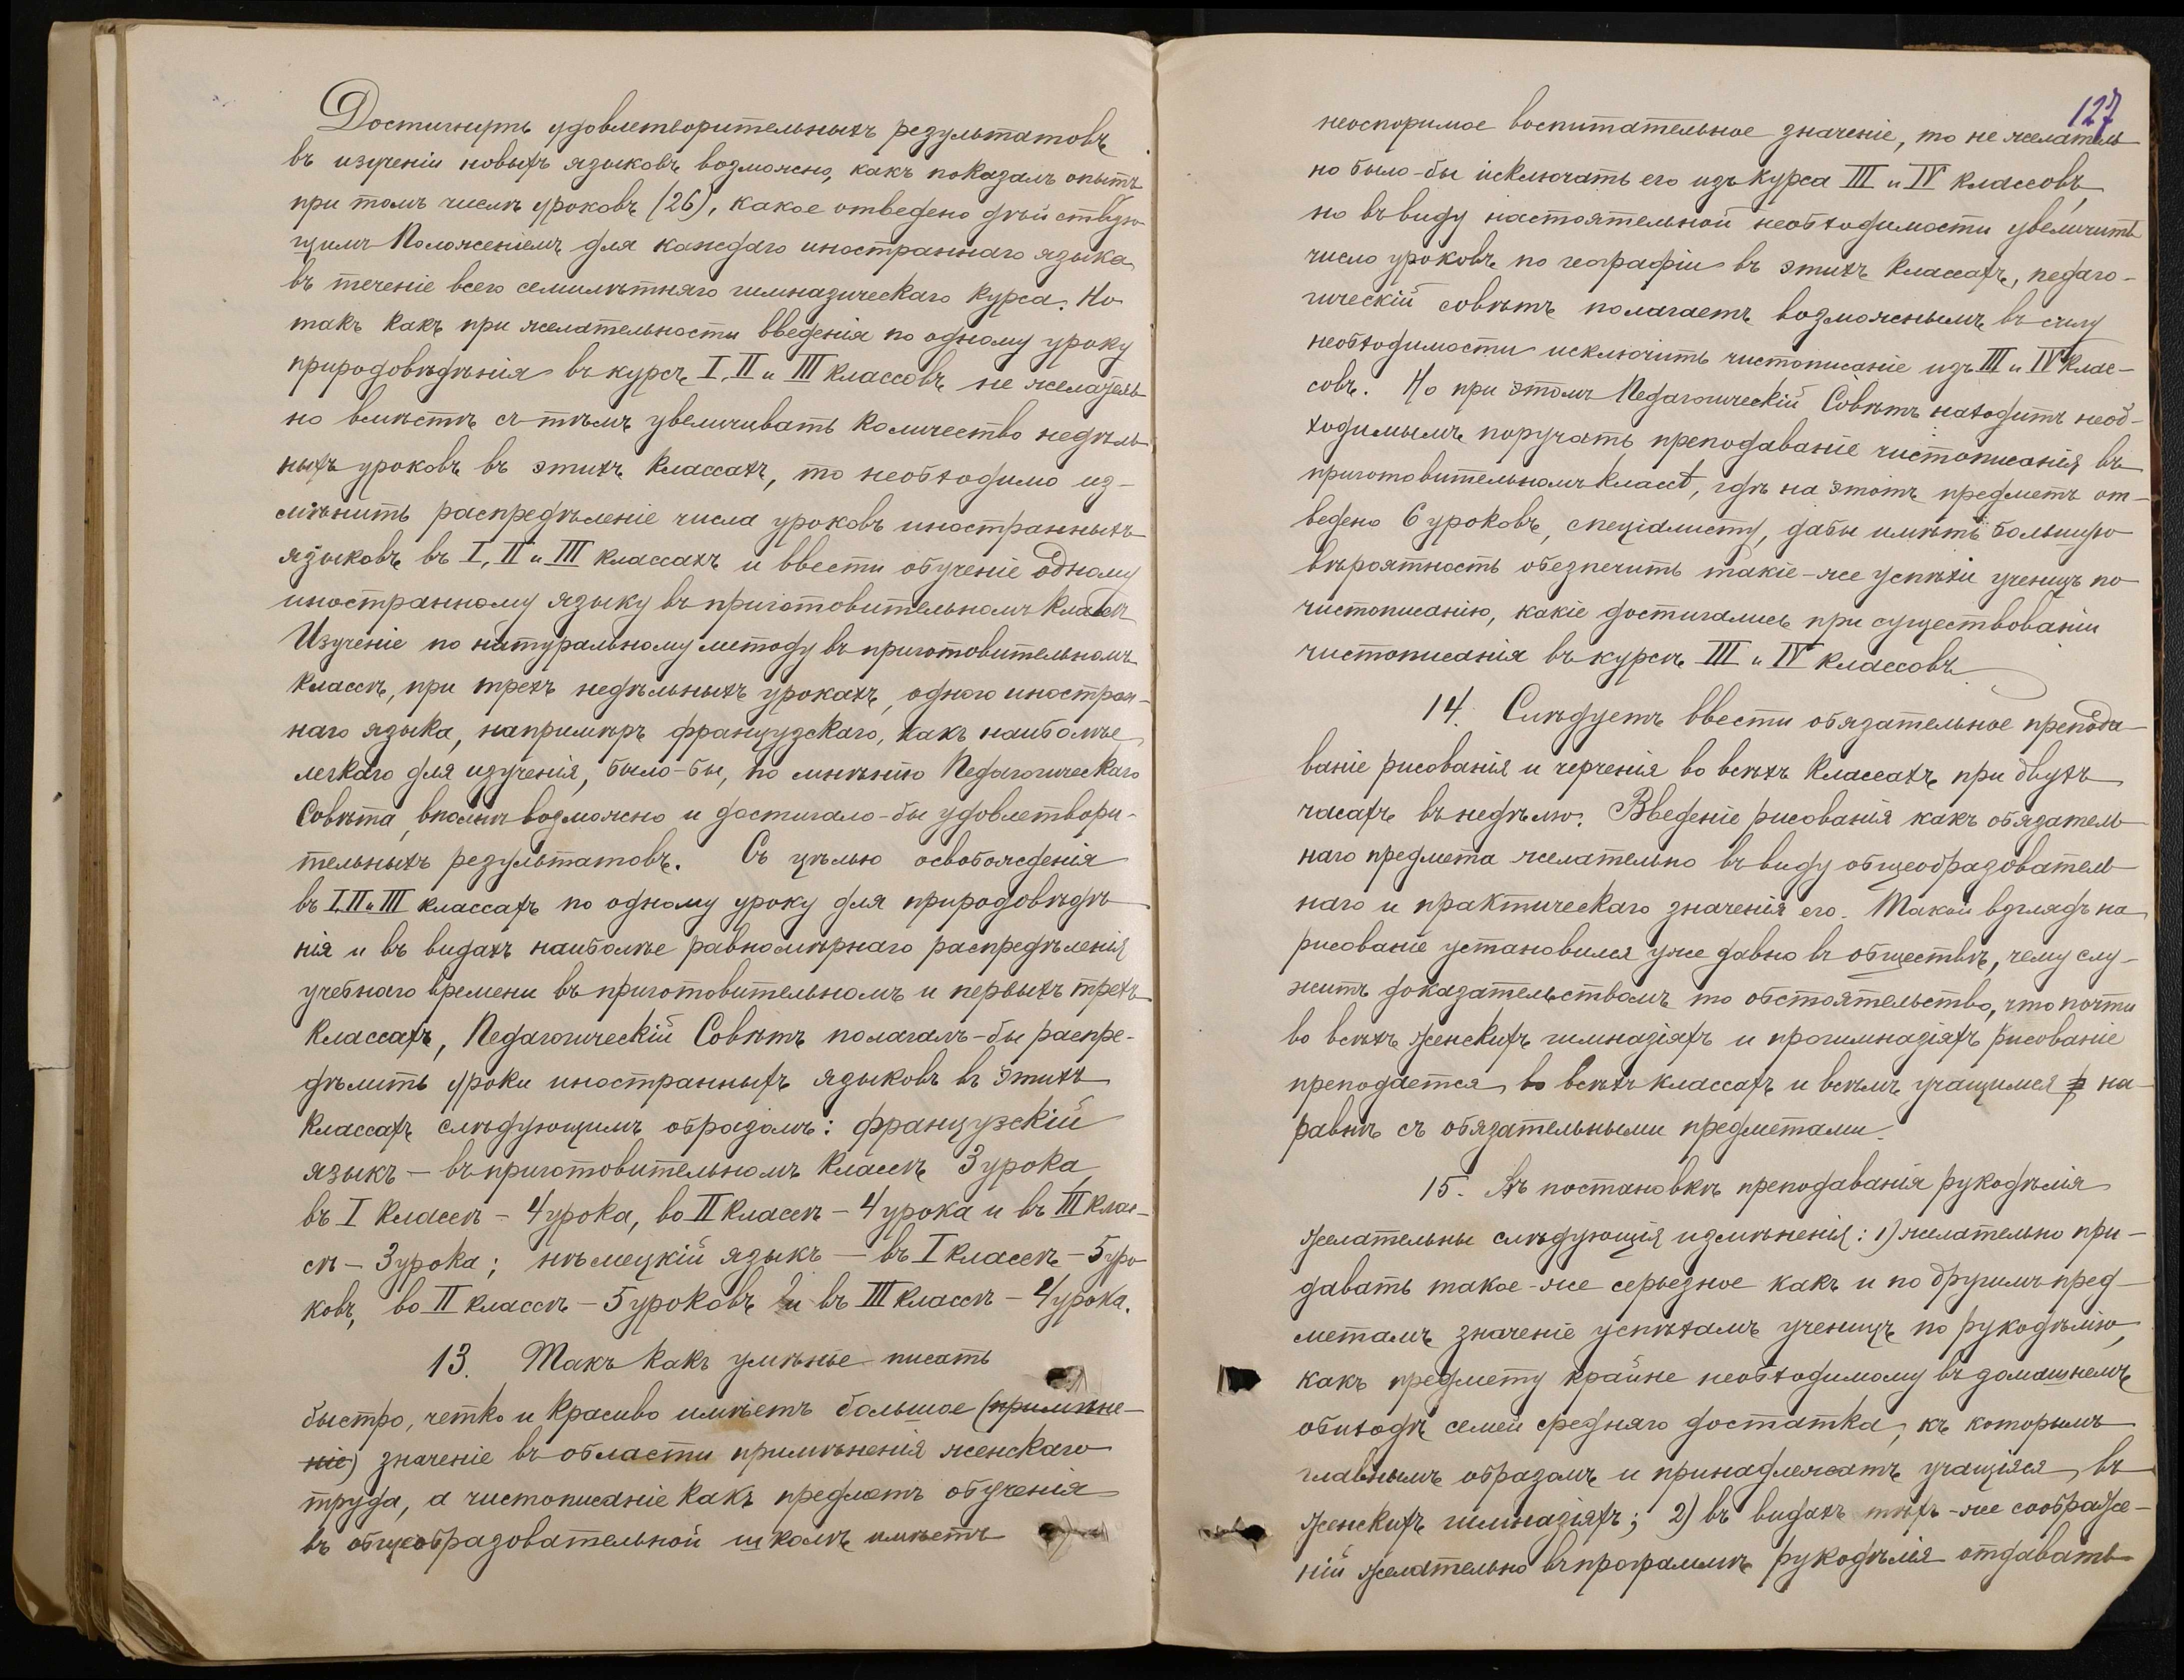 Достигнуть удовлетворительныхъ результатовъ
въ изученіи новыхъ языковъ возможно, какъ показалъ опытъ
при томъ числѣ уроковъ (26), какое отведено дѣйствую-
щимъ Положеніемъ для каждаго иностраннаго языка
въ теченіе всего семилѣтняго гимназическаго курса. Но
такъ какъ при желательности введенія по одному уроку
природовѣдѣнія въ курсъ I, II и III классовъ не желатель-
но вмѣстѣ съ тѣмъ увеличивать количество недѣль-
ныхъ уроковъ въ этихъ классахъ, то необходимо из-
мѣнить распредѣленіе числа уроковъ иностранныхъ
языковъ въ I, II и III классахъ и ввести обученіе одному
иностранному языку въ приготовительномъ классѣ
Изученіе по натуральному методу въ приготовительномъ
классѣ, при трехъ недѣльныхъ урокахъ, одного иностран-
наго языка, напримѣръ французскаго, какъ наиболѣе
легкаго для изученія, было-бы, по мнѣнію Педагогическаго
Совѣта, вполнѣ возможно и достигало-бы удовлетвори-
тельныхъ результатовъ. Съ цѣлью освобожденія
въ I, II и III классахъ по одному уроку для природовѣдѣ-
нія и въ видахъ наиболѣе равномѣрнаго распредѣленія
учебнаго времени въ приготовительномъ и первыхъ трехъ
классахъ, Педагогическій Совѣтъ полагалъ-бы распре-
дѣлить уроки иностранныхъ языковъ въ этихъ
классахъ слѣдующимъ образомъ: французскій
языкъ — въ приготовительномъ классѣ 3 урока,
въ I классѣ — 4 урока, во II классѣ — 4 урока и въ III клас-
сѣ — 3 урока; нѣмецкій языкъ — въ I классѣ — 5 уро-
ковъ, во II классѣ — 5 уроковъ и въ III классѣ — 4 урока.
13. Такъ какъ умѣнье писать
быстро, четко и красиво имѣетъ большое (примѣне-
ніе) значеніе въ области примѣненія женскаго
труда, а чистописаніе какъ предметъ обученія
въ общеобразовательной школѣ имѣетъ
127
неоспоримое воспитательное значеніе, то не желатель-
но было-бы исключать его изъ курса III и IV классовъ,
но въ виду настоятельной необходимости увеличить
число уроковъ по географіи въ этихъ классахъ, педаго-
гическій совѣтъ полагаетъ возможнымъ въ силу
необходимости исключить чистописаніе изъ III и IV клас-
совъ. Но при этомъ Педагогическій Совѣтъ находитъ необ-
ходимымъ поручать преподаваніе чистописанія въ
приготовительномъ классѣ, гдѣ на этотъ предметъ от-
ведено 6 уроковъ, спеціалисту, дабы имѣть большую
вѣроятность обезпечить такіе-же успѣхи ученицъ по
чистописанію, какіе достигались при существованіи
чистописанія въ курсѣ III и IV классовъ
14. Слѣдуетъ ввести обязательное препода-
ваніе рисованія и черченія во всѣхъ классахъ при двухъ
часахъ въ недѣлю. Введеніе рисованія какъ обязатель-
наго предмета желательно въ виду общеобразователь-
наго и практическаго значенія его. Такой взглядъ на
рисованіе установился уже давно въ обществѣ, чему слу-
житъ доказательствомъ то обстоятельство, что почти
во всѣхъ женскихъ гимназіяхъ и прогимназіяхъ рисованіе
преподается во всѣхъ классахъ и всѣмъ учащимся на-
равнѣ съ обязательными предметами.
15. Въ постановкѣ преподаванія рукодѣлія
желательны слѣдующія измѣненія: 1) желательно при-
давать такое-же серьезное какъ и по другимъ пред-
метамъ значеніе успѣхамъ ученицъ по рукодѣлію,
какъ предмету крайне необходимому въ домашнемъ
обиходѣ семей средняго достатка, къ которымъ
главнымъ образомъ и принадлежатъ учащіяся въ
женскихъ гимназіяхъ; 2) въ видахъ тѣхъ-же соображе-
ній желательно въ программѣ рукодѣлія отдавать